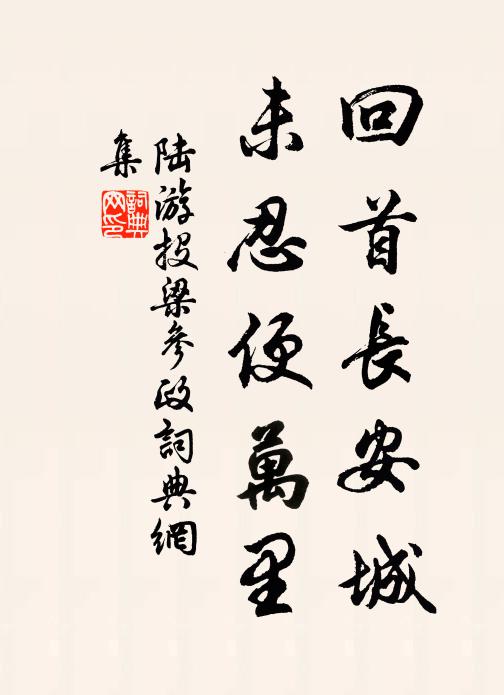 回首長安城
未忍便萬里
陸游投梁參政詞典網
集
詞典網印